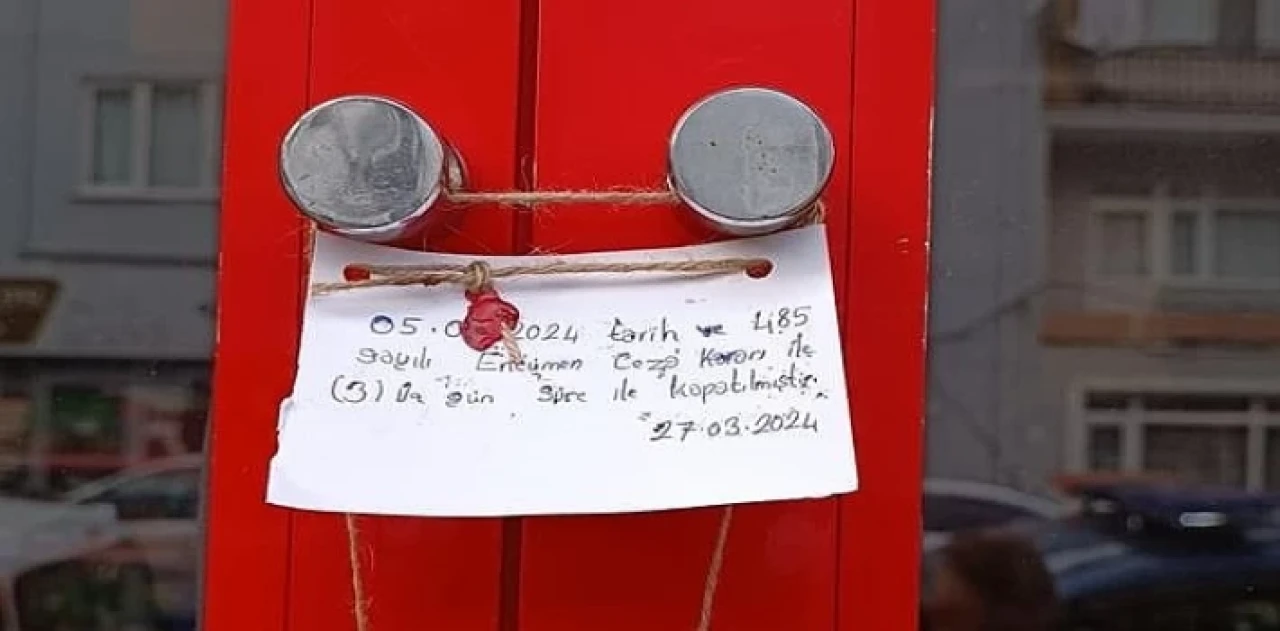 2024 tarih ve 485
sayılı Encümen Ceza Kararı ile
(3) Üç gün süre ile kapatılmıştır.
27.03.2024